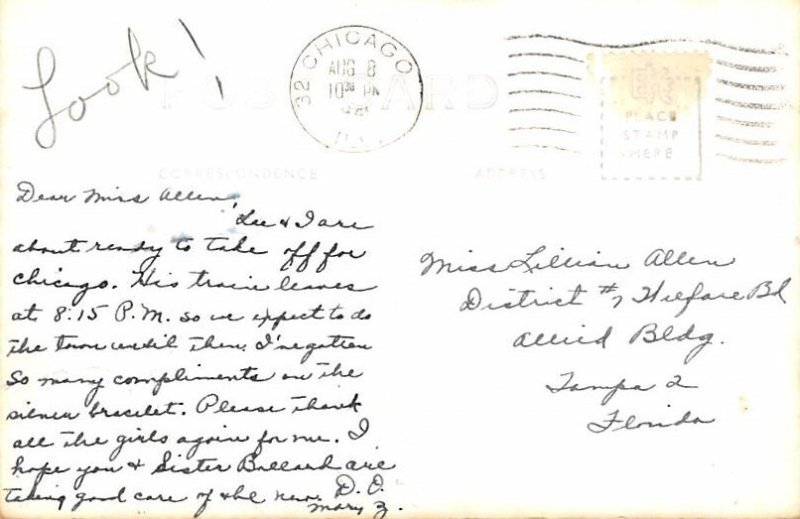 Look!
POST CARD
32 CHICAGO
AUG 8
10 30 PM
ILL
PLACE
STAMP
HERE
CORRESPONDENCE
ADDRESS
Dear Miss Allen,
Lee & I are
about ready to take off for
Chicago. His train leaves
at 8:15 P.M. so we expect to do
the town until then. I've gotten
So many compliments on the
silver bracelet. Please thank
all the girls again for me. I
hope you & Sister Ballard are
taking good care of the new D.O.
Mary Z.
Miss Lillian Allen
District #7 Welfare Bd
Allied Bldg.
Tampa 2
Florida